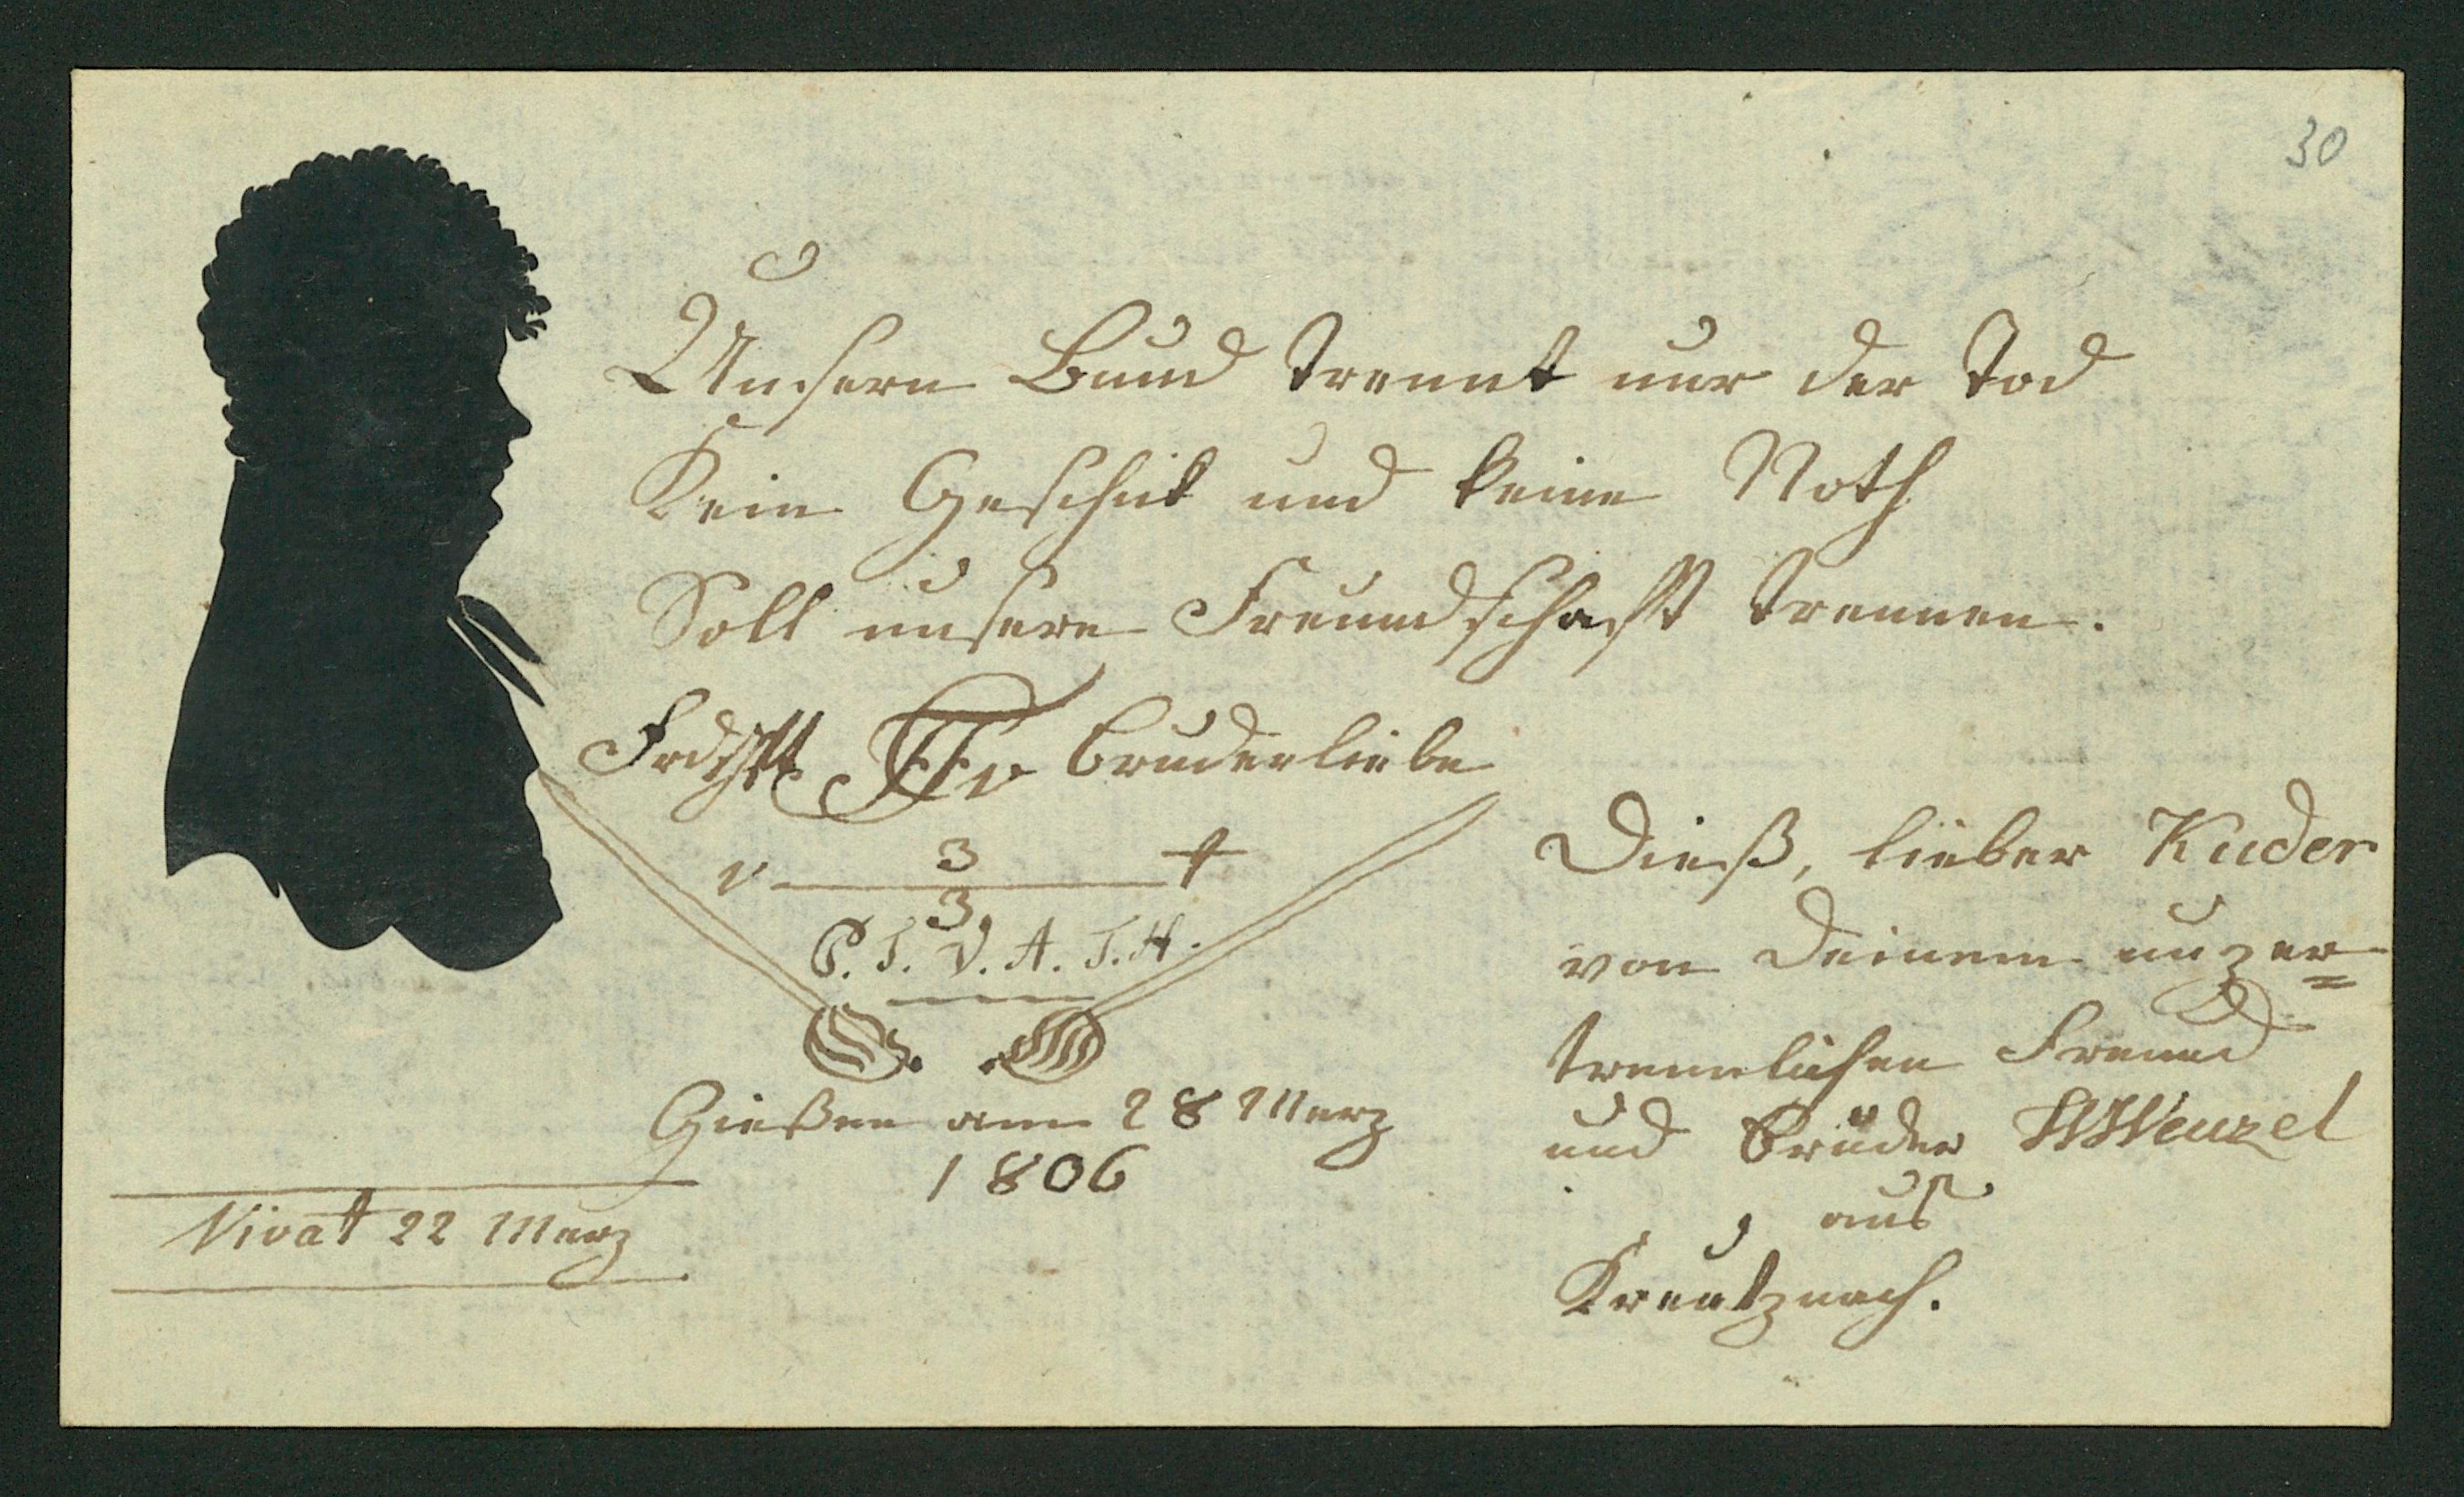 30
Unsern Bund trennt nur der Tod
Kein Geschik und keine Noth
Soll unsere Freundschafft trennen.
Frdschft Bruderliebe
v 3 †
3
C. I. V. A. I. H.
Gießen am 28 Merz
1806
Vivat 22 Merz
Dieß, lieber Kuder
von Deinem unzer=
trennlichen Freund
und Brüder WWenzel
aus
Kreutznach.